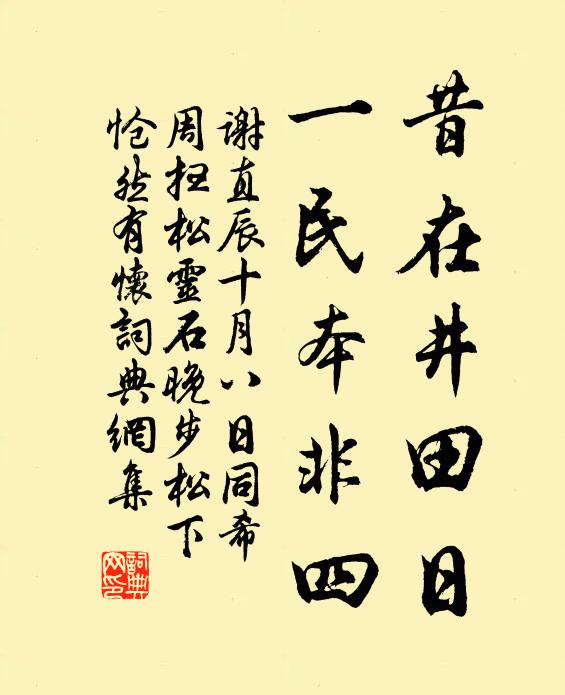 昔在井田日
一民本非四
謝直辰十月八日同希
周扫松靈石晚步松下
怆然有懷詞典網集
詞典
网印